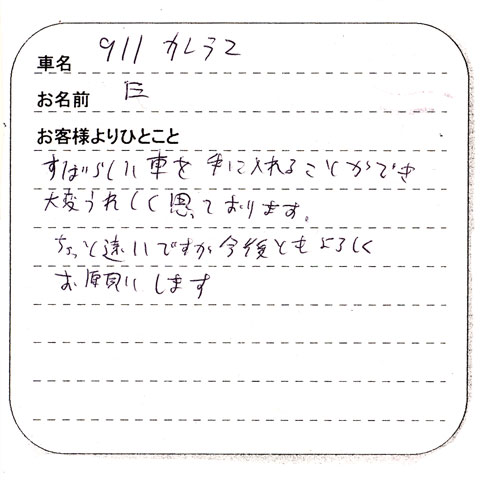 車名 911 カレラ2
お名前 E
お客様よりひとこと
すばらしい車を手に入れることができ
大変うれしく思っております。
ちょっと遠いですが今後ともよろしく
お願いします